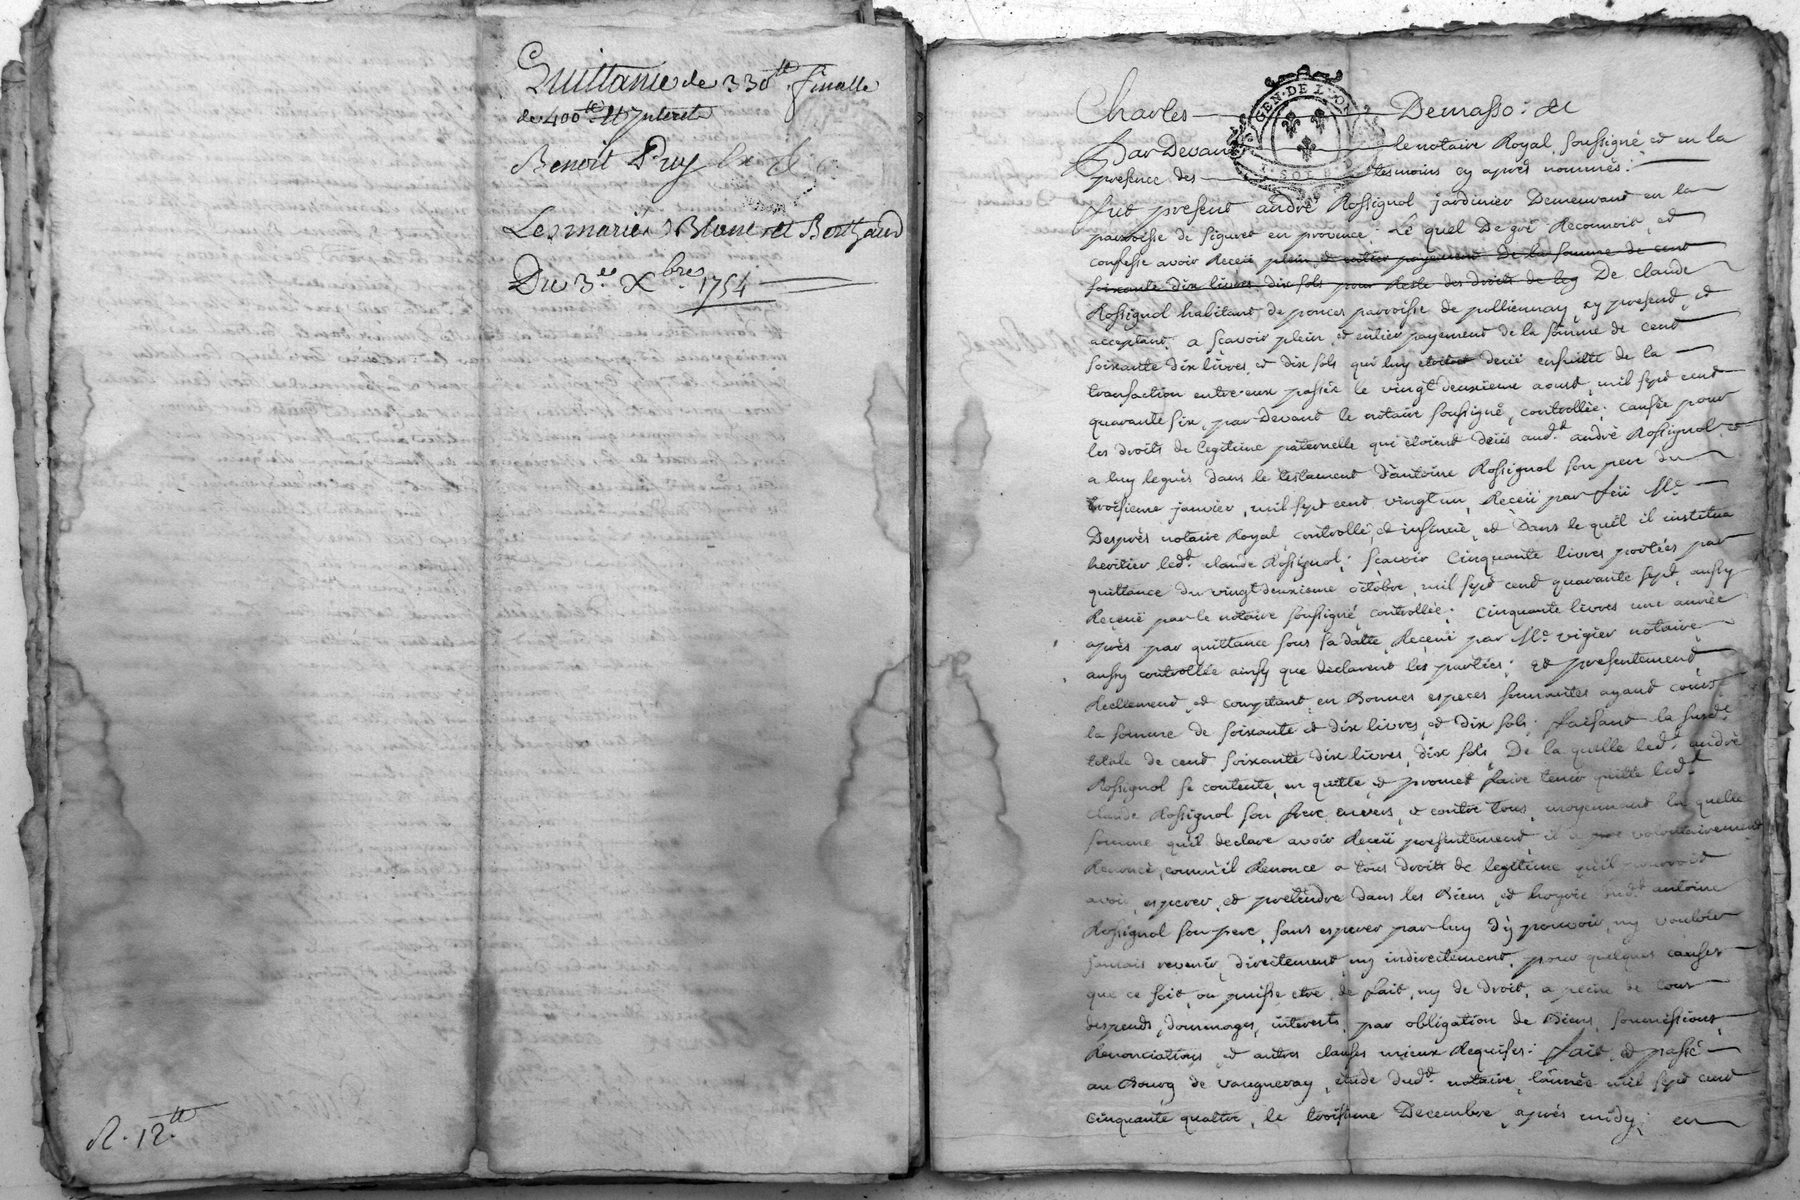 Quittance de 330lt finalle
de 400lt et jnterets
Benoit Puy
Les mariés Blanc et Berthaud
Du 3.e Xbre. 1754
R. 12.lt
GEN. DE LYON
SOLS
Charles Demasso: et
Par Devant le notaire Royal, soussigné et en la
presence des tesmoins cy après nommés:
fut present andré Rossignol jardinier Demeurant en la
parroisse de siguret en provence: Le quel De gré Reconnoit, et
confesse avoir Receü plein, et entier payement de la somme de cent
soixante dix livres, dix sols pour Reste des droits de leg De claude
Rossignol habitant de ponces parroisse de polliennay, cy present, et
acceptant: a scavoir plein, et entier payement de la somme de cent
soixante dix livres, et dix sols qui luy etoient deüe ensuitte de la
transaction entre eux passée le vingt deuxieme aoust, mil sept cent
quarante six, par Devant le notaire soussigné, controllée: causée pour
les droits de legitime paternelle qui étoient deüs aud.t andré Rossignol, et
a luy legués dans le testament d'antoine Rossignol son pere du
troisieme janvier, mil sept cent vingt un, Receü par feü M.e
Desprès notaire Royal controllé, et insinué, et Dans le quel il institua
heritier led.t claude Rossignol; scavoir Cinquante livres portées par
quittance du vingt deuxieme octobre, mil sept cent quarante sept, aussy
Receüe par le notaire soussigné, controllée; Cinquante livres une année
après par quittance sous sa datte Receüe par M.e vigier notaire
aussy controllée ainsy que declarent les parties; Et presentement,
Reellement, et comptant en Bonnes especes sonnantes ayant cours
la somme de soixante et dix livres, et dix sols; faisant la susd.te
totale de cent soixante dix livres, dix sols, De la quelle led.t andré
Rossignol se contente, en quitte, et promet faire tenir quitte led.t
claude Rossignol son frere, envers, et contre tous, moyennant la quelle
somme qu'il declare avoir Receü presentement, il a volontairement
Renoncé, comm'il Renonce a tous droits de legitime qu'il pourroit
avoir, esperer, et prétendre dans les Biens, et hoyrie dud.t antoine
Rossignol son pere, sans esperer par luy d'y pouvoir, ny vouloir
jamais revenir, directement, ny indirectement, pour quelques causes
que ce soit, ou puisse etre, de fait, ny de droit, a peine de tous
despends, dommages, interests, par obligation de Biens, soumissions,
Renonciations, et autres clauses mieux Requises: fait, et passé
au Bourg de vaugneray, étude dud.t notaire, l'année mil sept cent
Cinquante quattre, le troisieme Decembre, après midy; en